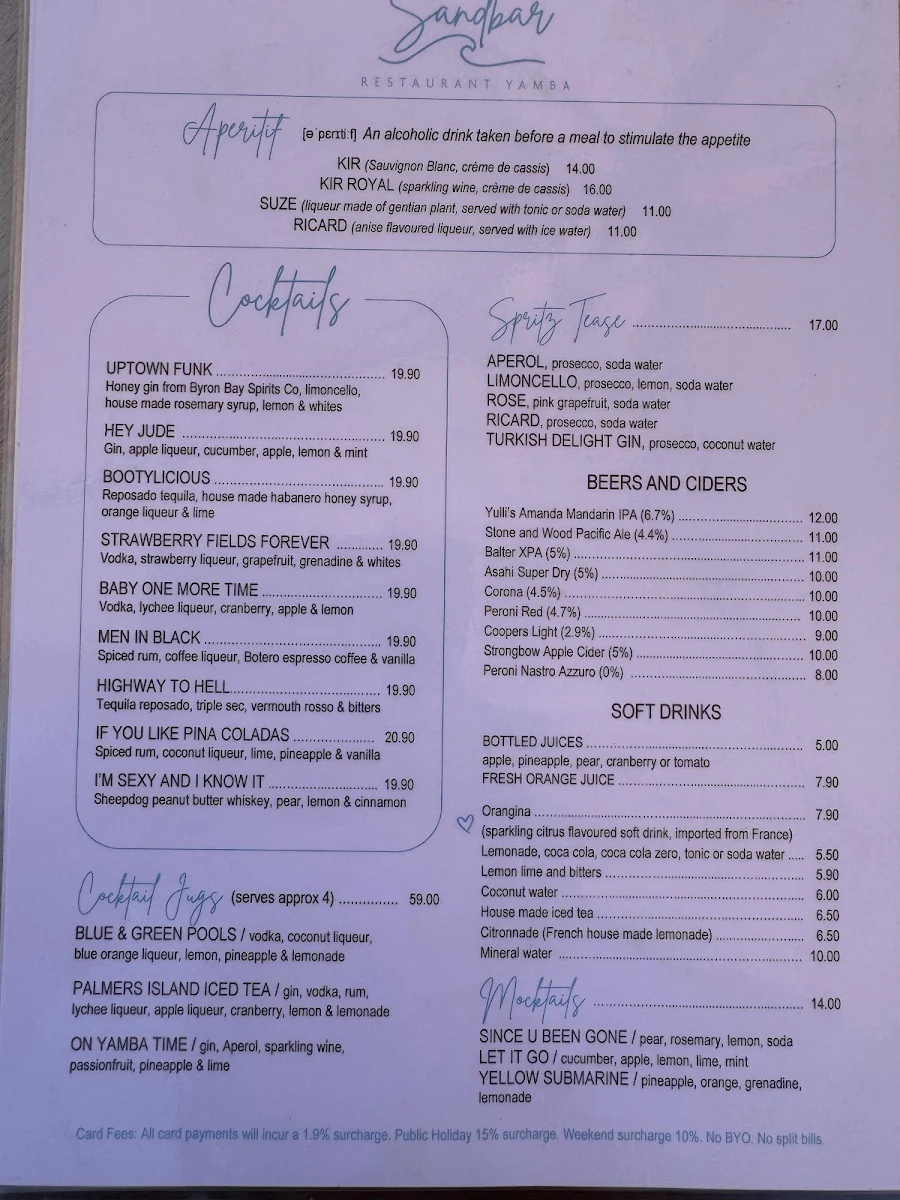 Sandbar
RESTAURANT YAMBA
Aperitif [əˈpɛrɪtiːf] An alcoholic drink taken before a meal to stimulate the appetite
KIR (Sauvignon Blanc, crème de cassis) 14.00
KIR ROYAL (sparkling wine, crème de cassis) 16.00
SUZE (liqueur made of gentian plant, served with tonic or soda water) 11.00
RICARD (anise flavoured liqueur, served with ice water) 11.00
Cocktails
UPTOWN FUNK ........ 19.90
Honey gin from Byron Bay Spirits Co, limoncello,
house made rosemary syrup, lemon & whites
HEY JUDE ........ 19.90
Gin, apple liqueur, cucumber, apple, lemon & mint
BOOTYLICIOUS ........ 19.90
Reposado tequila, house made habanero honey syrup,
orange liqueur & lime
STRAWBERRY FIELDS FOREVER ........ 19.90
Vodka, strawberry liqueur, grapefruit, grenadine & whites
BABY ONE MORE TIME ........ 19.90
Vodka, lychee liqueur, cranberry, apple & lemon
MEN IN BLACK ........ 19.90
Spiced rum, coffee liqueur, Botero espresso coffee & vanilla
HIGHWAY TO HELL ........ 19.90
Tequila reposado, triple sec, vermouth rosso & bitters
IF YOU LIKE PINA COLADAS ........ 20.90
Spiced rum, coconut liqueur, lime, pineapple & vanilla
I'M SEXY AND I KNOW IT ........ 19.90
Sheepdog peanut butter whiskey, pear, lemon & cinnamon
Cocktail Jugs (serves approx 4) ........ 59.00
BLUE & GREEN POOLS / vodka, coconut liqueur,
blue orange liqueur, lemon, pineapple & lemonade
PALMERS ISLAND ICED TEA / gin, vodka, rum,
lychee liqueur, apple liqueur, cranberry, lemon & lemonade
ON YAMBA TIME / gin, Aperol, sparkling wine,
passionfruit, pineapple & lime
Spritz Tease ........ 17.00
APEROL, prosecco, soda water
LIMONCELLO, prosecco, lemon, soda water
ROSE, pink grapefruit, soda water
RICARD, prosecco, soda water
TURKISH DELIGHT GIN, prosecco, coconut water
BEERS AND CIDERS
Yulli's Amanda Mandarin IPA (6.7%) ........ 12.00
Stone and Wood Pacific Ale (4.4%) ........ 11.00
Balter XPA (5%) ........ 11.00
Asahi Super Dry (5%) ........ 10.00
Corona (4.5%) ........ 10.00
Peroni Red (4.7%) ........ 10.00
Coopers Light (2.9%) ........ 9.00
Strongbow Apple Cider (5%) ........ 10.00
Peroni Nastro Azzuro (0%) ........ 8.00
SOFT DRINKS
BOTTLED JUICES ........ 5.00
apple, pineapple, pear, cranberry or tomato
FRESH ORANGE JUICE ........ 7.90
Orangina ........ 7.90
(sparkling citrus flavoured soft drink, imported from France)
Lemonade, coca cola, coca cola zero, tonic or soda water ..... 5.50
Lemon lime and bitters ........ 5.90
Coconut water ........ 6.00
House made iced tea ........ 6.50
Citronnade (French house made lemonade) ........ 6.50
Mineral water ........ 10.00
Mocktails ........ 14.00
SINCE U BEEN GONE / pear, rosemary, lemon, soda
LET IT GO / cucumber, apple, lemon, lime, mint
YELLOW SUBMARINE / pineapple, orange, grenadine,
lemonade
Card Fees: All card payments will incur a 1.9% surcharge. Public Holiday 15% surcharge. Weekend surcharge 10%. No BYO. No split bills.